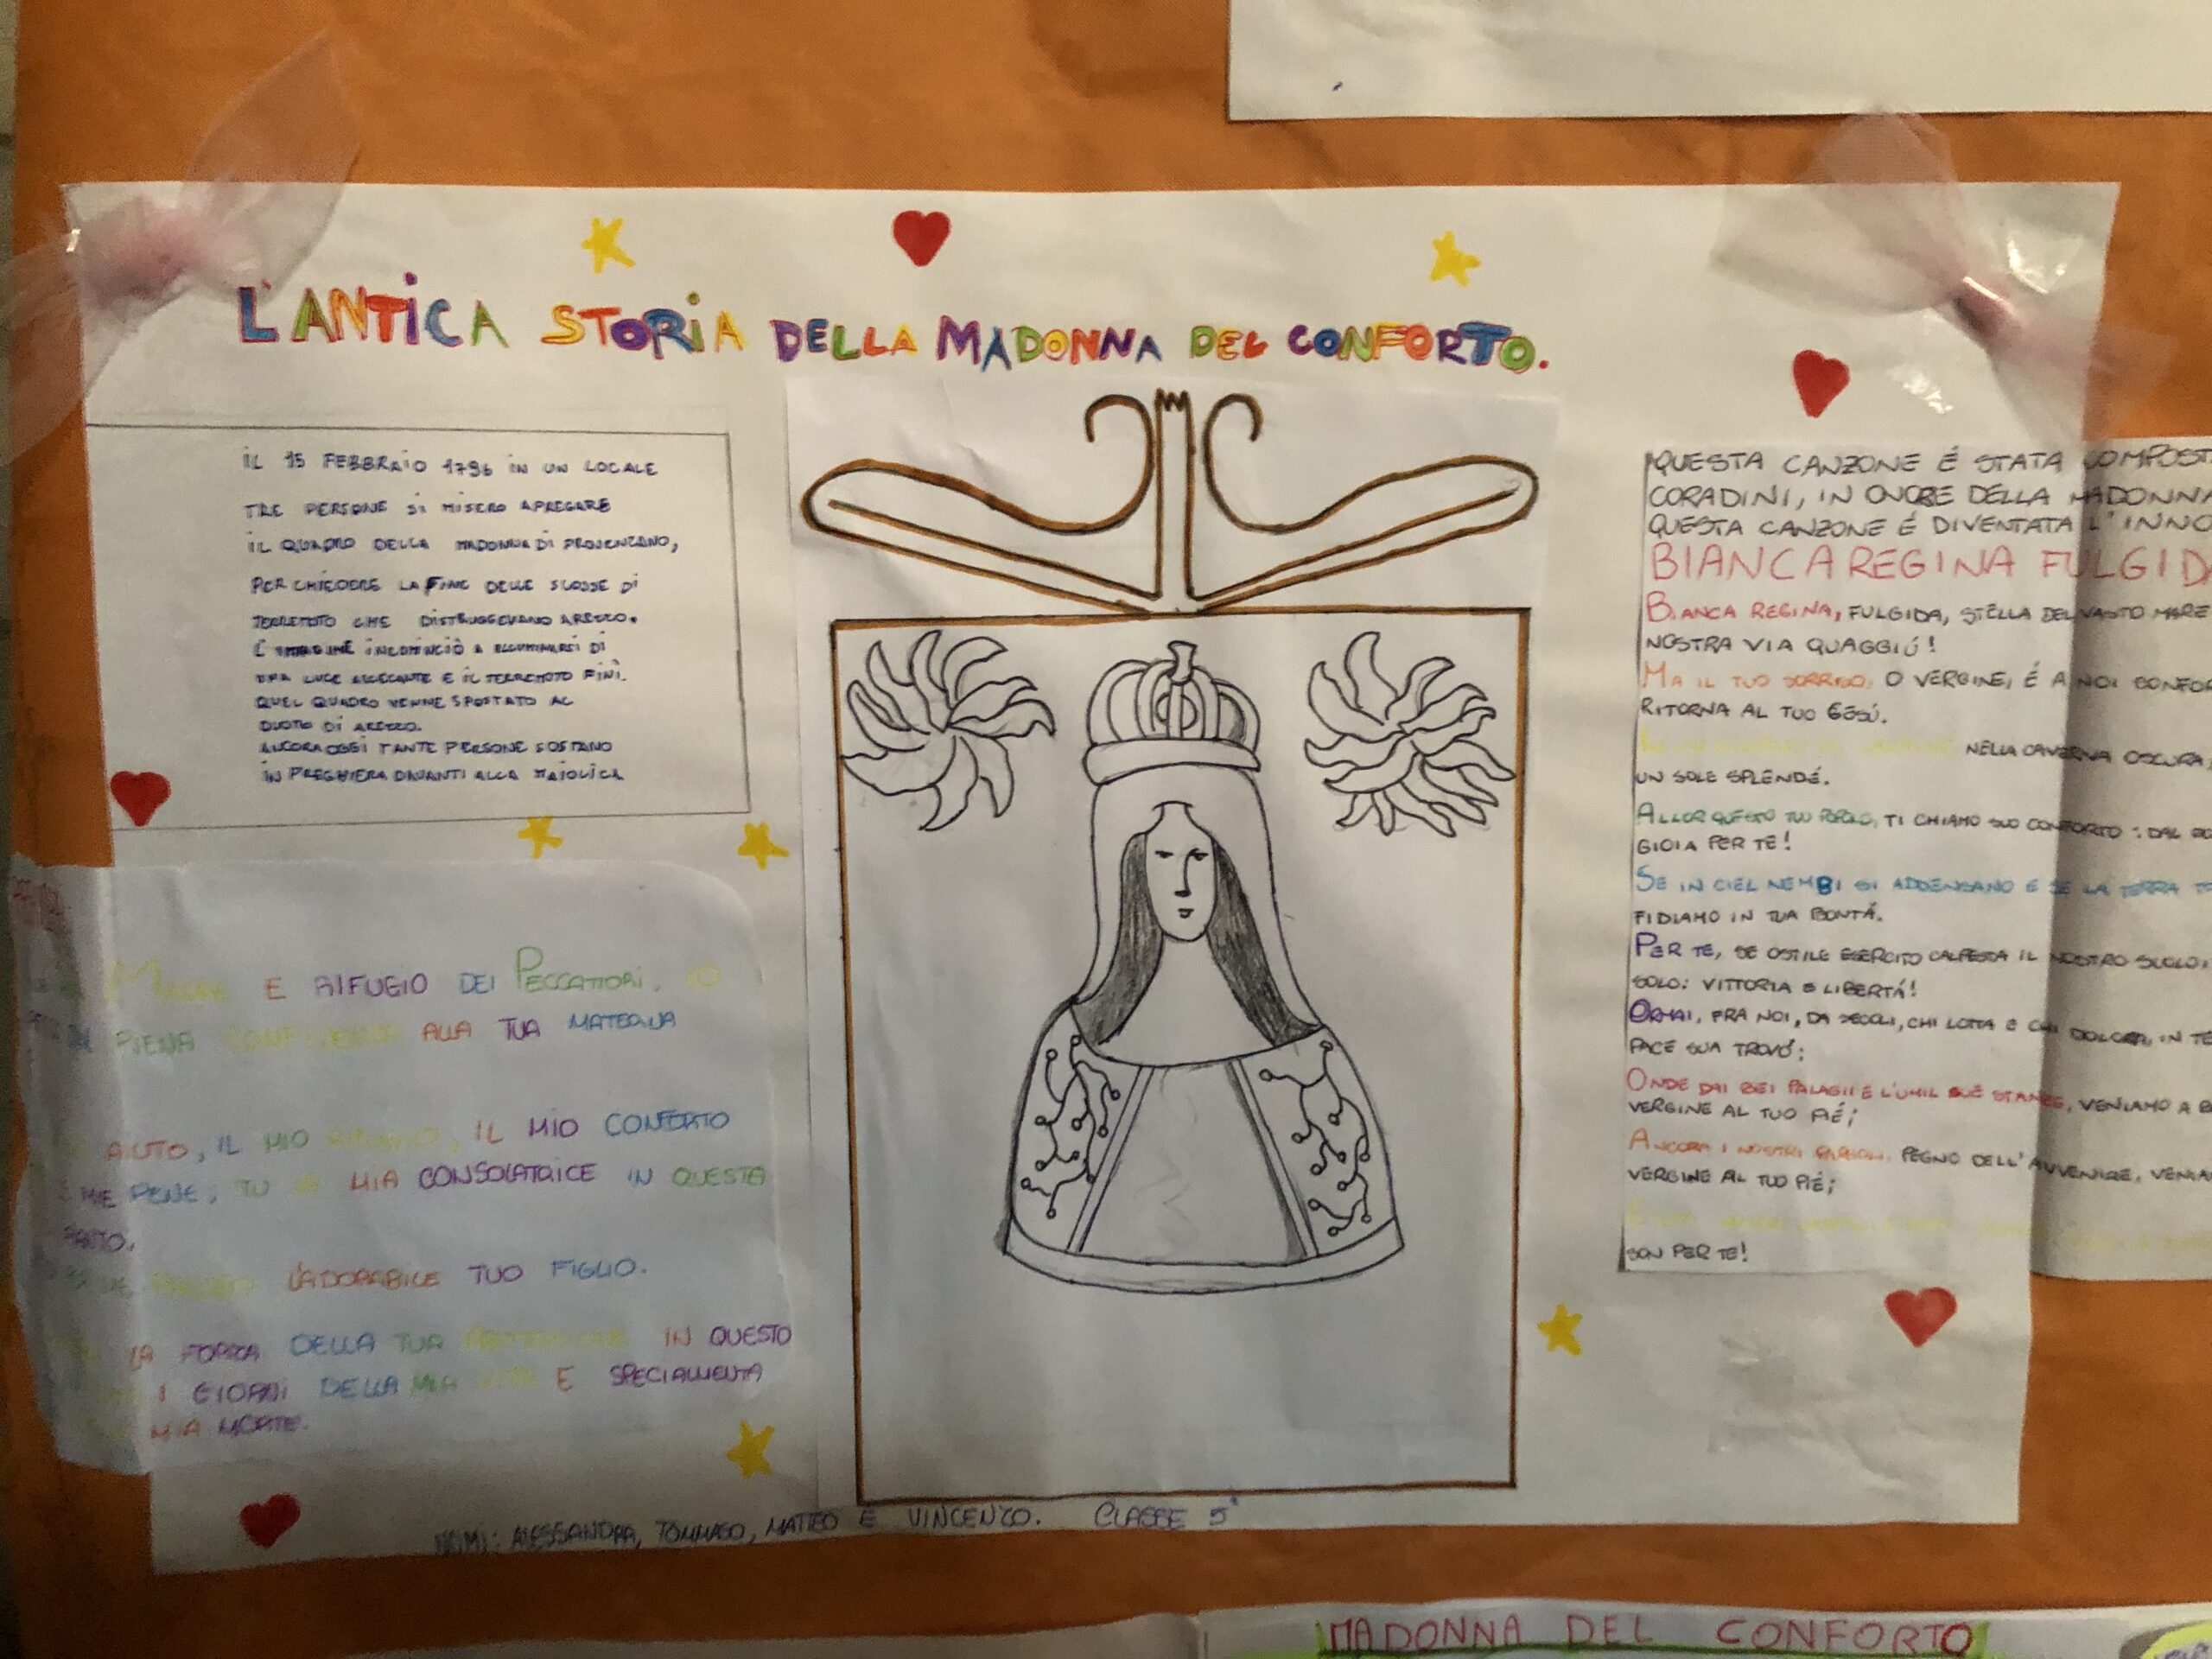 L'ANTICA STORIA DELLA MADONNA DEL CONFORTO.
IL 15 FEBBRAIO 1796 IN UN LOCALE
TRE PERSONE SI MISERO APREGARE
IL QUADRO DELLA MADONNA DI PROVENZANO,
PER CHIEDERE LA FINE DELLE SCOSSE DI
TERREMOTO CHE DISTRUGGEVANO AREZZO.
L'IMMAGINE INCOMINCIÒ A ILLUMINARSI DI
UNA LUCE ACCECANTE E IL TERREMOTO FINÌ.
QUEL QUADRO VENNE SPOSTATO AL
DUOMO DI AREZZO.
ANCORA OGGI TANTE PERSONE SOSTANO
IN PREGHIERA DAVANTI ALLA MAIOLICA
E RIFUGIO DEI PECCATORI, IO
PIENA ALLA TUA MATERNA
AIUTO, IL MIO IL MIO CONFORTO
MIE PENE, TU MIA CONSOLATRICE IN QUESTA
L'ADORABILE TUO FIGLIO.
LA FORZA DELLA TUA PROTEZIONE IN QUESTO
I GIORNI DELLA MIA VITA E SPECIALMENTA
MIA MORTE.
QUESTA CANZONE É STATA COMPOST
CORADINI, IN ONORE DELLA MADONNA
QUESTA CANZONE É DIVENTATA L'INNO
BIANCA REGINA FULGIDA
BIANCA REGINA, FULGIDA, STELLA DEL VASTO MARE
NOSTRA VIA QUAGGIÚ!
MA IL TUO SORRISO, O VERGINE, É A NOI CONFOR
RITORNA AL TUO GESÚ.
NELLA CAVERNA OSCURA,
UN SOLE SPLENDÉ.
ALLOR QUESTO TUO POPOLO, TI CHIAMO SUO CONFORTO: DAL
GIOIA PER TE!
SE IN CIEL NEMBI SI ADDENSANO E SE LA TERRA
FIDIAMO IN TUA BONTÁ.
PER TE, SE OSTILE ESERCITO CALPESTA IL NOSTRO SUOLO,
SOLO: VITTORIA E LIBERTÁ!
ORMAI, FRA NOI, DA SECOLI, CHI LOTTA E CHI DOLORA, IN TE
PACE SUA TROVÓ;
ONDE DAI BEI PALAGI E L'UMIL SUE STANZE, VENIAMO A
VERGINE AL TUO PIÉ;
ANCORA I NOSTRI PARGOLI, PEGNO DELL'AVVENIRE, VENIA
VERGINE AL TUO PIÉ;
SON PER TE!
NOMI: ALESSANDRA, TOMMASO, MATTEO E VINCENZO. CLASSE 5ª
MADONNA DEL CONFORTO